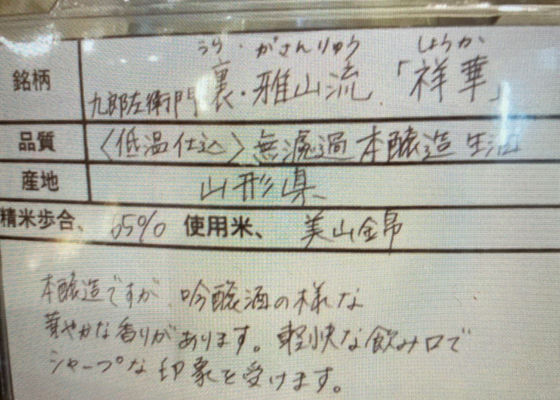 うら・がさんりゅう しょうか
銘柄 九郎左衛門 裏・雅山流 「祥華」
品質 〈低温仕込〉無濾過本醸造生酒
産地 山形県
精米歩合、65% 使用米、美山錦
本醸造ですが、吟醸酒の様な
華やかな香りがあります。軽快な飲み口で
シャープな印象を受けます。